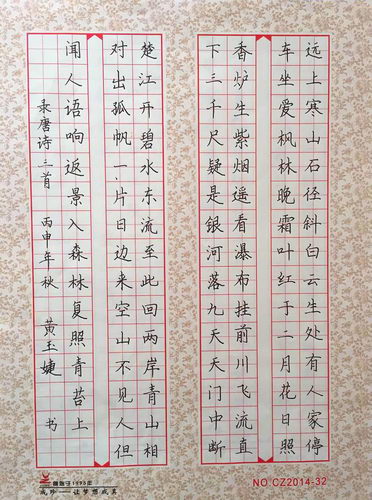 远上寒山石径斜白云生处有人家停
车坐爱枫林晚霜叶红于二月花日照
香炉生紫烟遥看瀑布挂前川飞流直
下三千尺疑是银河落九天天门中断
楚江开碧水东流至此回两岸青山相
对出孤帆一片日边来空山不见人但
闻人语响返景入森林复照青苔上
录唐诗三首 丙申年秋 黄玉婕 书
1998年
成珍——让梦想成真
NO.CZ2014-32